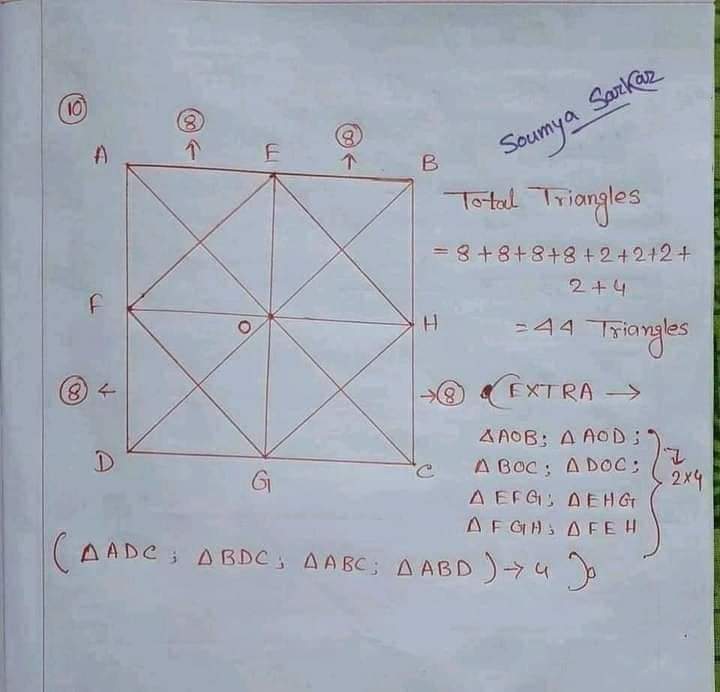 ⑩
Soumya Sarkar
⑧ ⑧
↑ ↑
A E B
Total Triangles
= 8+8+8+8+2+2+2+
2+4
= 44 Triangles
F O H
⑧ ← → ⑧ (EXTRA →
∆AOB; ∆AOD;
∆BOC; ∆DOC;
2×4
∆EFG; ∆EHG
∆FGH; ∆FEH
D G C
(∆ADC; ∆BDC; ∆ABC; ∆ABD) → 4